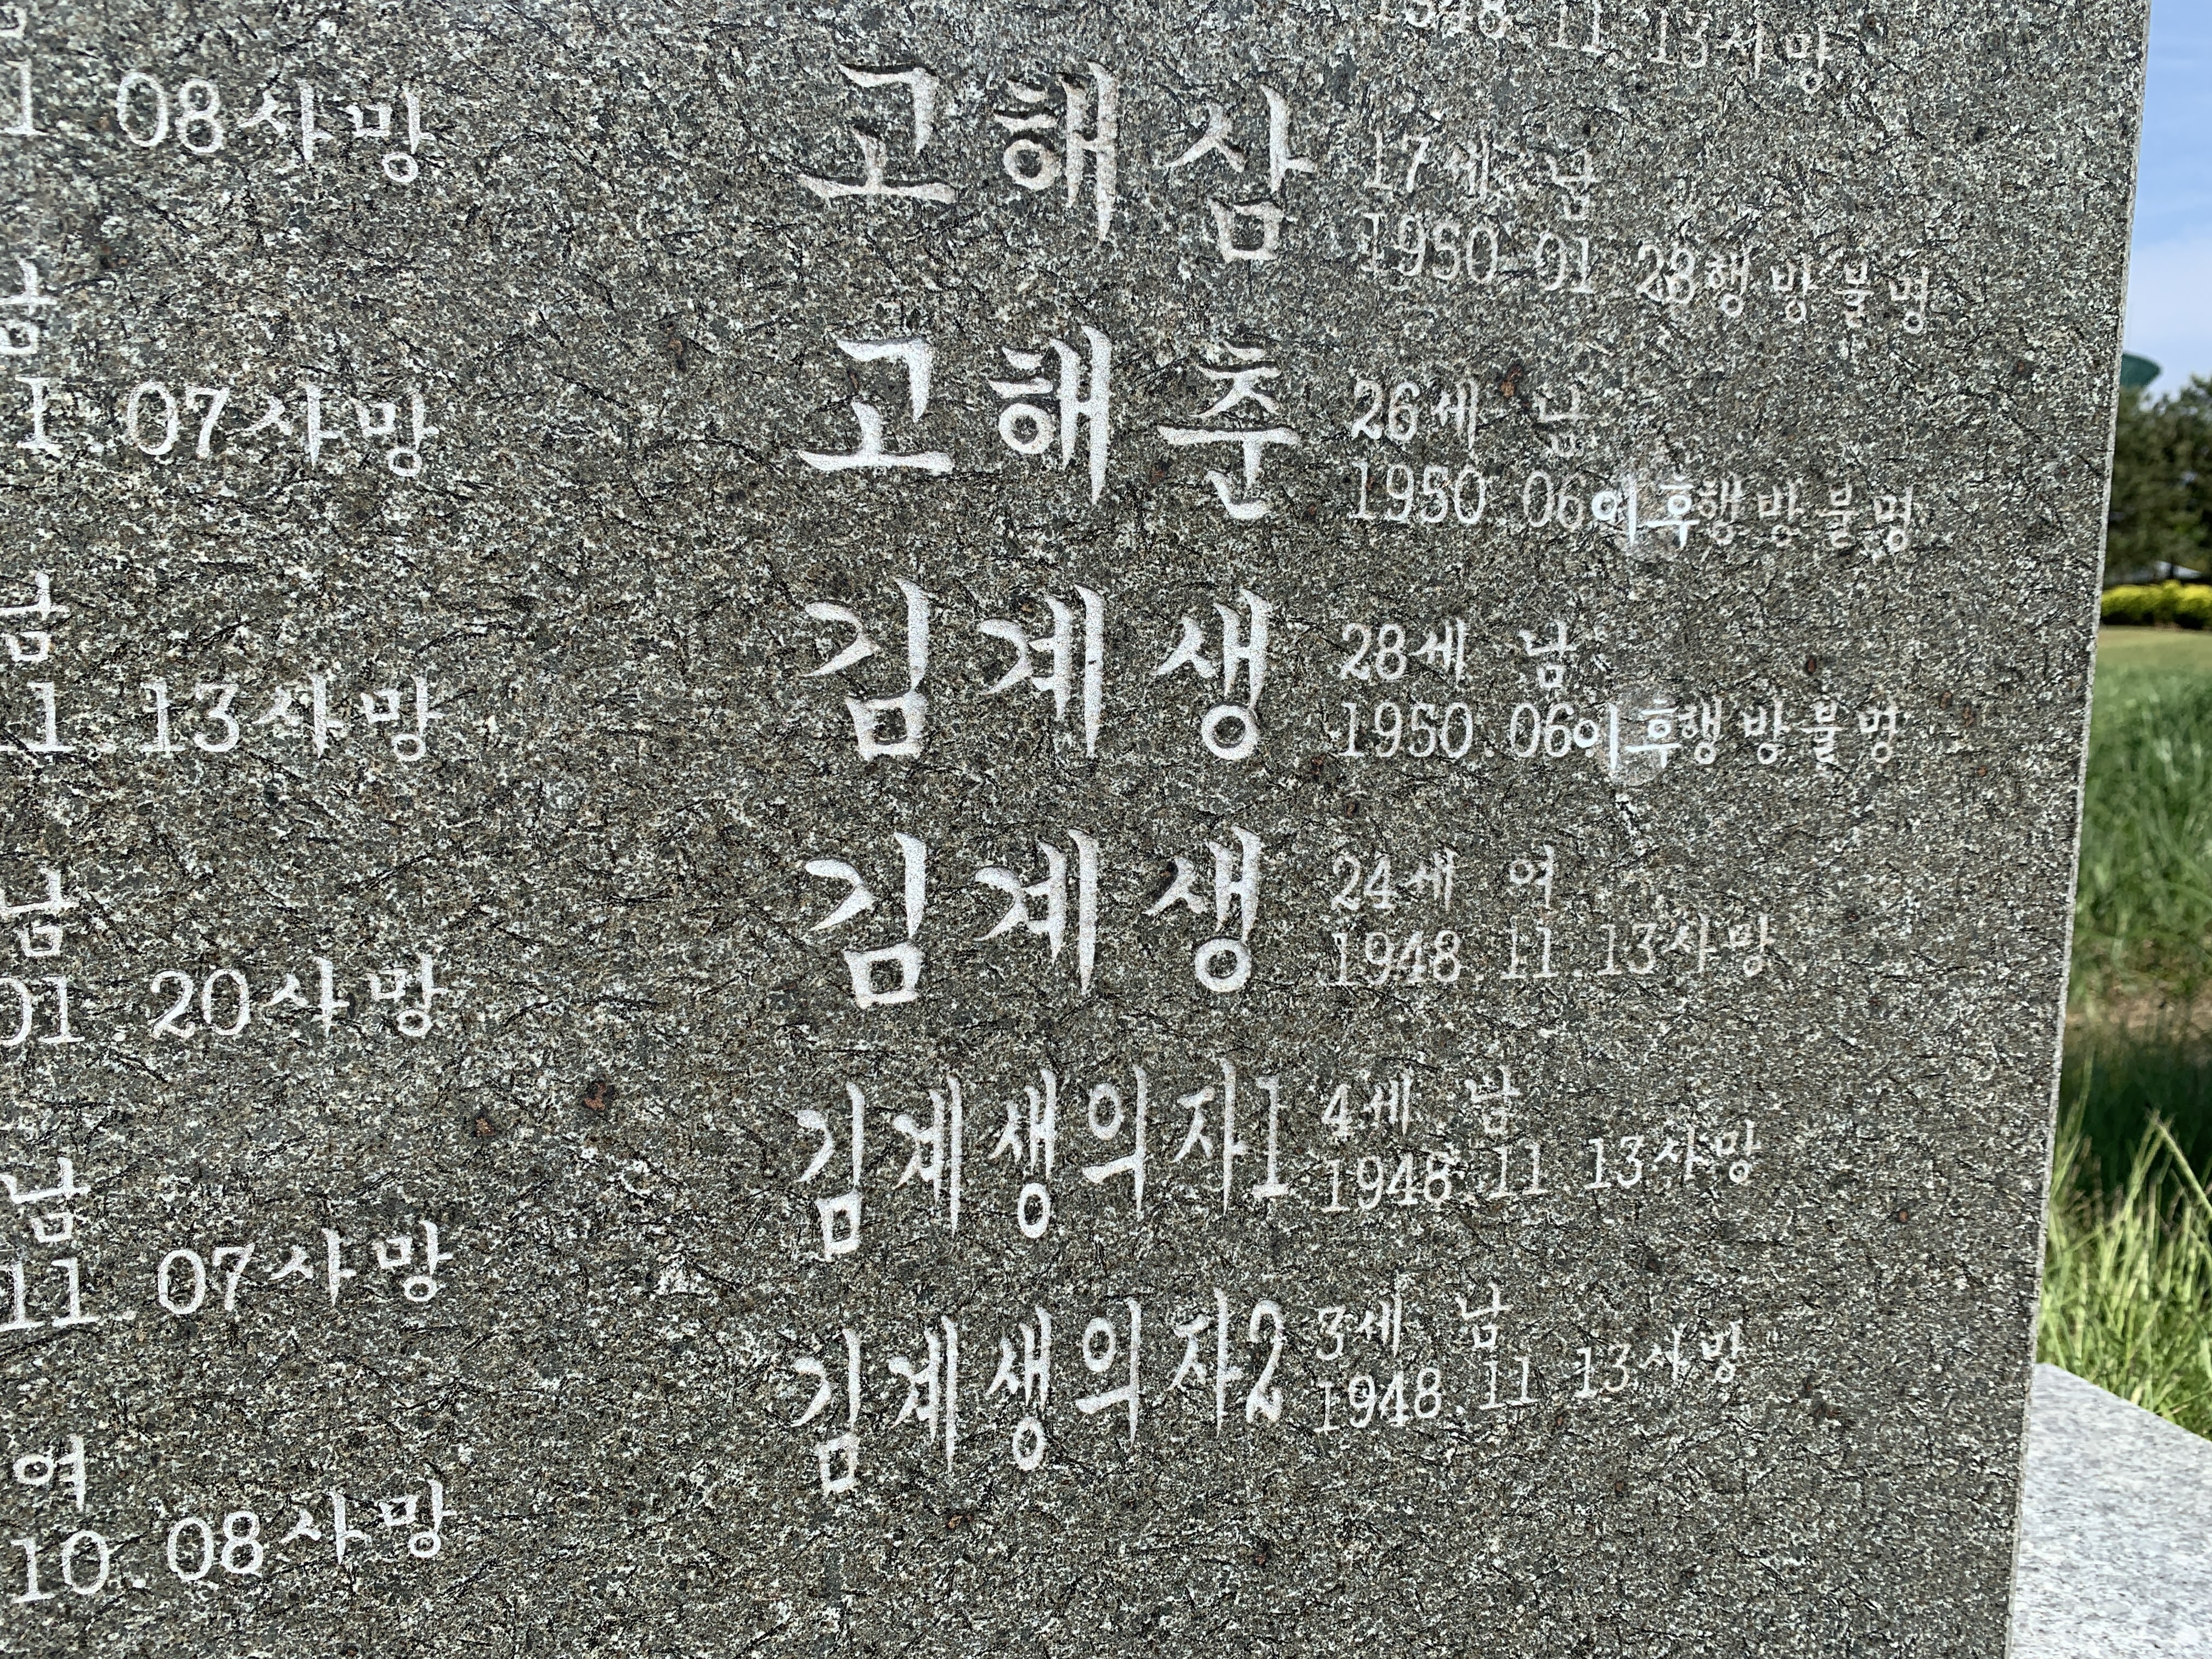 1 08사망
남
1.07사망
남
11.13사망
남
01.20사망
남
11.07사망
여
10.08사망
1948.11.13사망
고해삼 17세 남
1950 01 28행방불명
고해춘 26세 남
1950.06이후행방불명
김계생 28세 남
1950.06이후행방불명
김계생 24세 여
1948.11.13사망
김계생의자1 4세 남
1948.11 13사망
김계생의자2 3세 남
1948.11 13사망